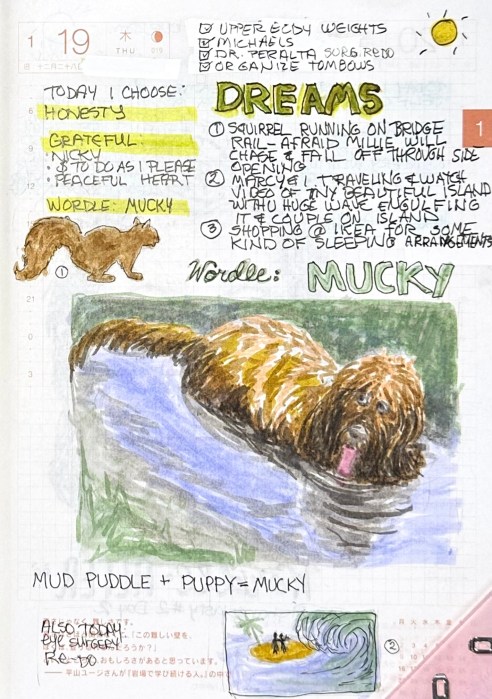 1 19 木 THU
UPPER BODY WEIGHTS
MICHAELS
DR. PERALTA SURG. REDO
ORGANIZE TOMBOWS
TODAY I CHOOSE:
HONESTY
GRATEFUL:
• NICKY
• $ TO DO AS I PLEASE
• PEACEFUL HEART
WORDLE: MUCKY
DREAMS
① SQUIRREL RUNNING ON BRIDGE
RAIL - AFRAID MILLIE WILL
CHASE & FALL OFF THROUGH SIDE
OPENING
② MARCY & I TRAVELING & WATCH
VIDEO OF TINY BEAUTIFUL ISLAND
WITH HUGE WAVE ENGULFING
IT & COUPLE ON ISLAND
③ SHOPPING @ IKEA FOR SOME
KIND OF SLEEPING ARRANGEMENTS
1
①
Wordle: MUCKY
6
9
12
21
0
3
MUD PUDDLE + PUPPY = MUCKY
ALSO TODAY
EYE SURGERY
RE-DO
「この難しい壁を、
おもしろさがあると思っています。
——平山ユージさんが『岩場で学び続ける人。』の中
②